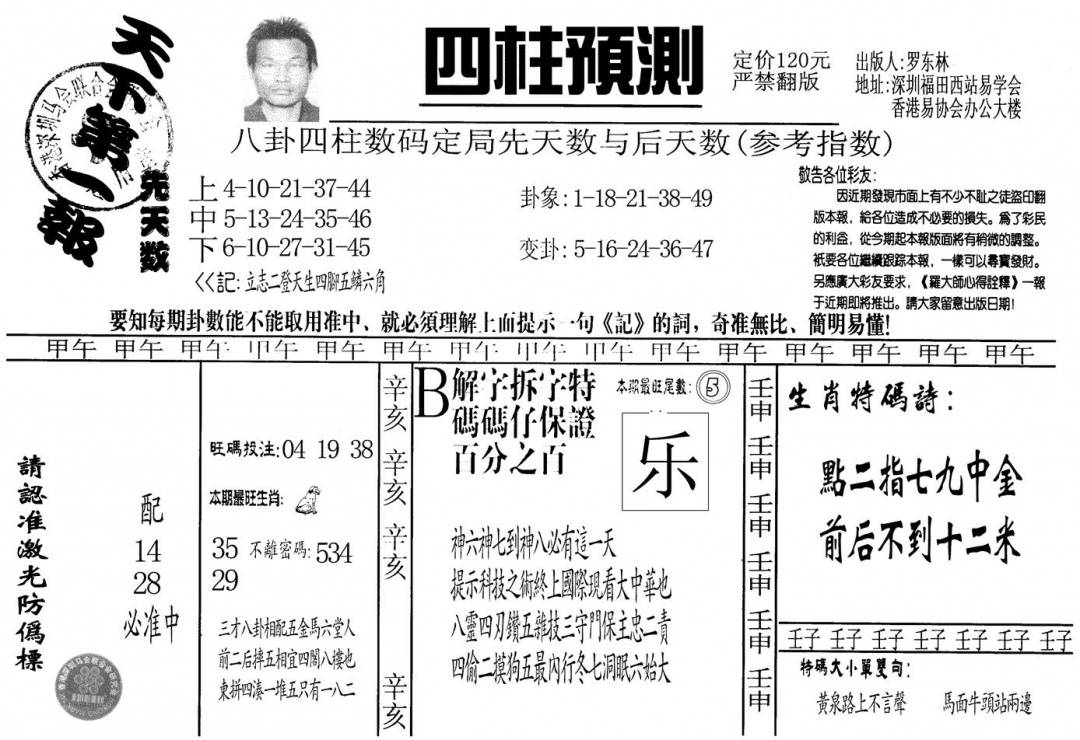 天下第一報
四柱預測
定价120元
严禁翻版
出版人:罗东林
地址:深圳福田西站易学会
香港易协会办公大楼
八卦四柱数码定局先天数与后天数(参考指数)
先天数
上4-10-21-37-44
中5-13-24-35-46
下6-10-27-31-45
卦象:1-18-21-38-49
变卦:5-16-24-36-47
<<記:立志二登天生四腳五鱗六角
敬告各位彩友:
因近期發現市面上有不少不耻之徒盜印翻
版本報,給各位造成不必要的損失。為了彩民
的利益,從今期起本報版面將有稍微的調整。
衹要各位繼續跟踪本報,一樣可以尋寶發財。
另應廣大彩友要求,《羅大師心得詮釋》一報
于近期即將推出。請大家留意出版日期!
要知每期卦數能不能取用准中、就必須理解上面提示一句《記》的詞,奇准無比、簡明易懂!
甲午 甲午 甲午 甲午 甲午 甲午 甲午 甲午 甲午 甲午 甲午 甲午 甲午 甲午 甲午
請認准激光防偽標
配
14
28
必准中
旺碼投注:04 19 38
本期最旺生肖:
35 不離密碼:534
29
三才八卦相配五金馬六堂人
前二后摔五相宜四閣八樓也
東拼四湊一堆五只有一八二
辛亥
辛亥
辛亥
辛亥
B解字拆字特
碼碼仔保證
百分之百
本期最旺尾數:5
乐
神六神七到神八必有這一天
提示科技之術終上國際現看大中華也
八靈四刃鑽五雜技三守門保主忠二責
四偷二摸狗五最內行冬七洞眠六始大
壬申
壬申
壬申
壬申
壬申
壬申
生肖特碼詩:
點二指七九中金
前后不到十二米
壬子 壬子 壬子 壬子 壬子 壬子 壬子
特碼大小單雙句:
黃泉路上不言聲 馬面牛頭站兩邊